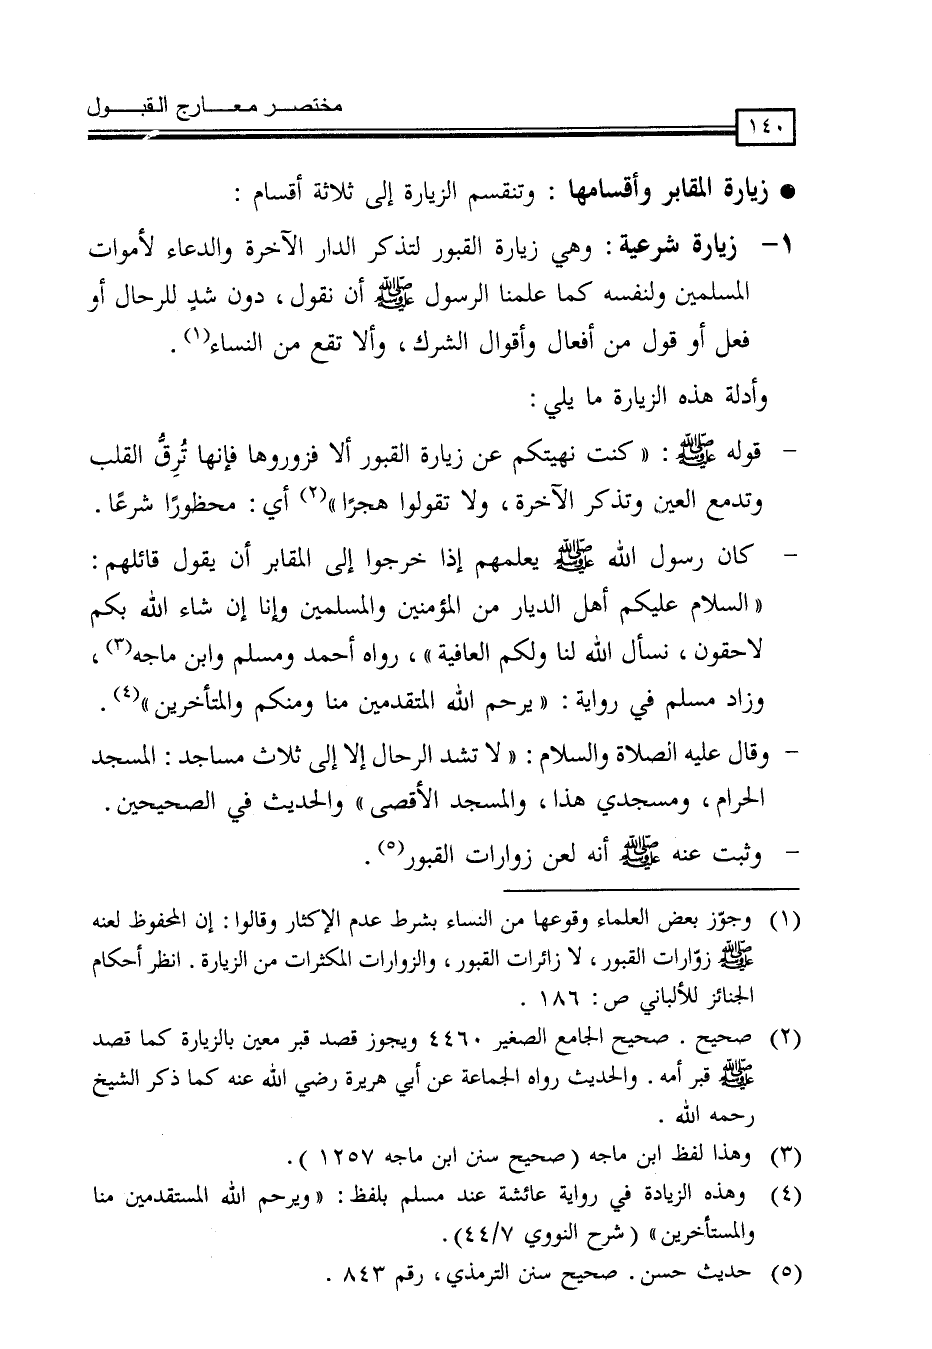 مختصر معارج القبول
١٤٠
● زيارة المقابر وأقسامها : وتنقسم الزيارة إلى ثلاثة أقسام :
١- زيارة شرعية : وهي زيارة القبور لتذكر الدار الآخرة والدعاء لأموات
المسلمين ولنفسه كما علمنا الرسول ﷺ أن نقول ، دون شدٍ للرحال أو
فعل أو قول من أفعال وأقوال الشرك ، وألا تقع من النساء(١) .
وأدلة هذه الزيارة ما يلي :
- قوله ﷺ : « كنت نهيتكم عن زيارة القبور ألا فزوروها فإنها تُرِقُّ القلب
وتدمع العين وتذكر الآخرة ، ولا تقولوا هجرًا »(٢) أي : محظورًا شرعًا .
- كان رسول الله ﷺ يعلمهم إذا خرجوا إلى المقابر أن يقول قائلهم :
« السلام عليكم أهل الديار من المؤمنين والمسلمين وإنا إن شاء الله بكم
لاحقون ، نسأل الله لنا ولكم العافية » ، رواه أحمد ومسلم وابن ماجه(٣) ،
وزاد مسلم في رواية : « يرحم الله المتقدمين منا ومنكم والمتأخرين »(٤) .
- وقال عليه الصلاة والسلام : « لا تشد الرحال إلا إلى ثلاث مساجد : المسجد
الحرام ، ومسجدي هذا ، والمسجد الأقصى » والحديث في الصحيحين .
- وثبت عنه ﷺ أنه لعن زوارات القبور(٥) .
(١) وجوّز بعض العلماء وقوعها من النساء بشرط عدم الإكثار وقالوا : إن المحفوظ لعنه
ﷺ زوّارات القبور ، لا زائرات القبور ، والزوارات المكثرات من الزيارة . انظر أحكام
الجنائز للألباني ص : ١٨٦ .
(٢) صحيح . صحيح الجامع الصغير ٤٤٦٠ ويجوز قصد قبر معين بالزيارة كما قصد
ﷺ قبر أمه . والحديث رواه الجماعة عن أبي هريرة رضي الله عنه كما ذكر الشيخ
رحمه الله .
(٣) وهذا لفظ ابن ماجه ( صحيح سنن ابن ماجه ١٢٥٧ ) .
(٤) وهذه الزيادة في رواية عائشة عند مسلم بلفظ : « ويرحم الله المستقدمين منا
والمستأخرين » ( شرح النووي ٤٤/٧) .
(٥) حديث حسن . صحيح سنن الترمذي ، رقم ٨٤٣ .